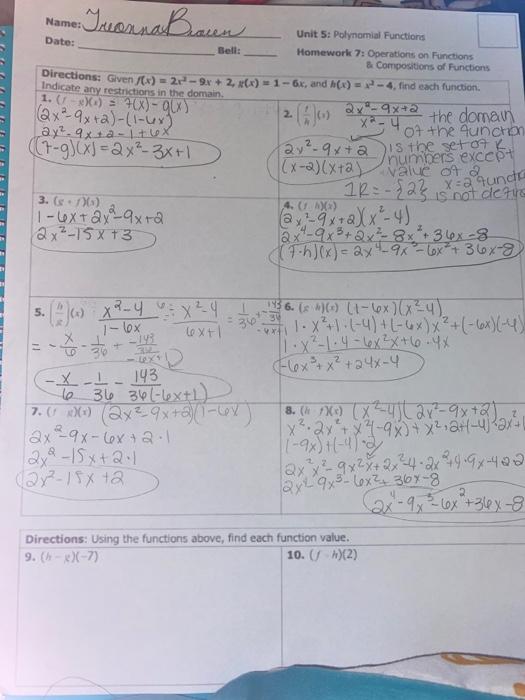 Name: Breonna Brown
Unit 5: Polynomial Functions
Date:
Bell:
Homework 7: Operations on Functions
& Compositions of Functions
Directions: Given f(x) = 2x² - 9x + 2, g(x) = 1 - 6x, and h(x) = x² - 4, find each function.
Indicate any restrictions in the domain.
1. (f - g)(x) = f(x) - g(x)
(2x²-9x+2)-(1-6x)
2x²-9x+2-1+6x
(f-g)(x)=2x²-3x+1
2. (f/h)(x) 2x²-9x+2 / x²-4
2x²-9x+2 / (x-2)(x+2)
the domain
of the function
is the set of R
numbers except
value of 2
x=2
IR = -{2}
is not
3. (g + f)(x)
1-6x+2x²-9x+2
2x²-15x+3
4. (f · h)(x)
(2x²-9x+2)(x²-4)
2x⁴-9x³+2x²-8x²+36x-8
(f·h)(x)=2x⁴-9x³-6x²+36x-8
5. (h/g)(x) x²-4 / 1-6x
x²-4 / 6x+1
= -x/6 - 1/36 + -143/36 / -6x+1
-x/6 - 1/36 - 143/36(-6x+1)
6. (g · h)(x) (1-6x)(x²-4)
1·x²+1·(-4)+(-6x)x²+(-6x)(-4)
1·x²-1·4-6x²x+6·4x
-6x³+x²+24x-4
7. (f · g)(x) (2x²-9x+2)(1-6x)
2x²-9x-6x+2·1
2x²-15x+2·1
2x²-15x+2
8. (h · f)(x) (x²-4)(2x²-9x+2)
x²·2x²+x²(-9x)+x²·2+(-4)·2x²+(-4)
(-9x)+(-4)·2
2x²x²-9x²x+2x²-4·2x²+4·9x-4·2
2x⁴-9x³-6x²+36x-8
2x⁴-9x³-6x²+36x-8
Directions: Using the functions above, find each function value.
9. (h - g)(-7)
10. (f · h)(2)